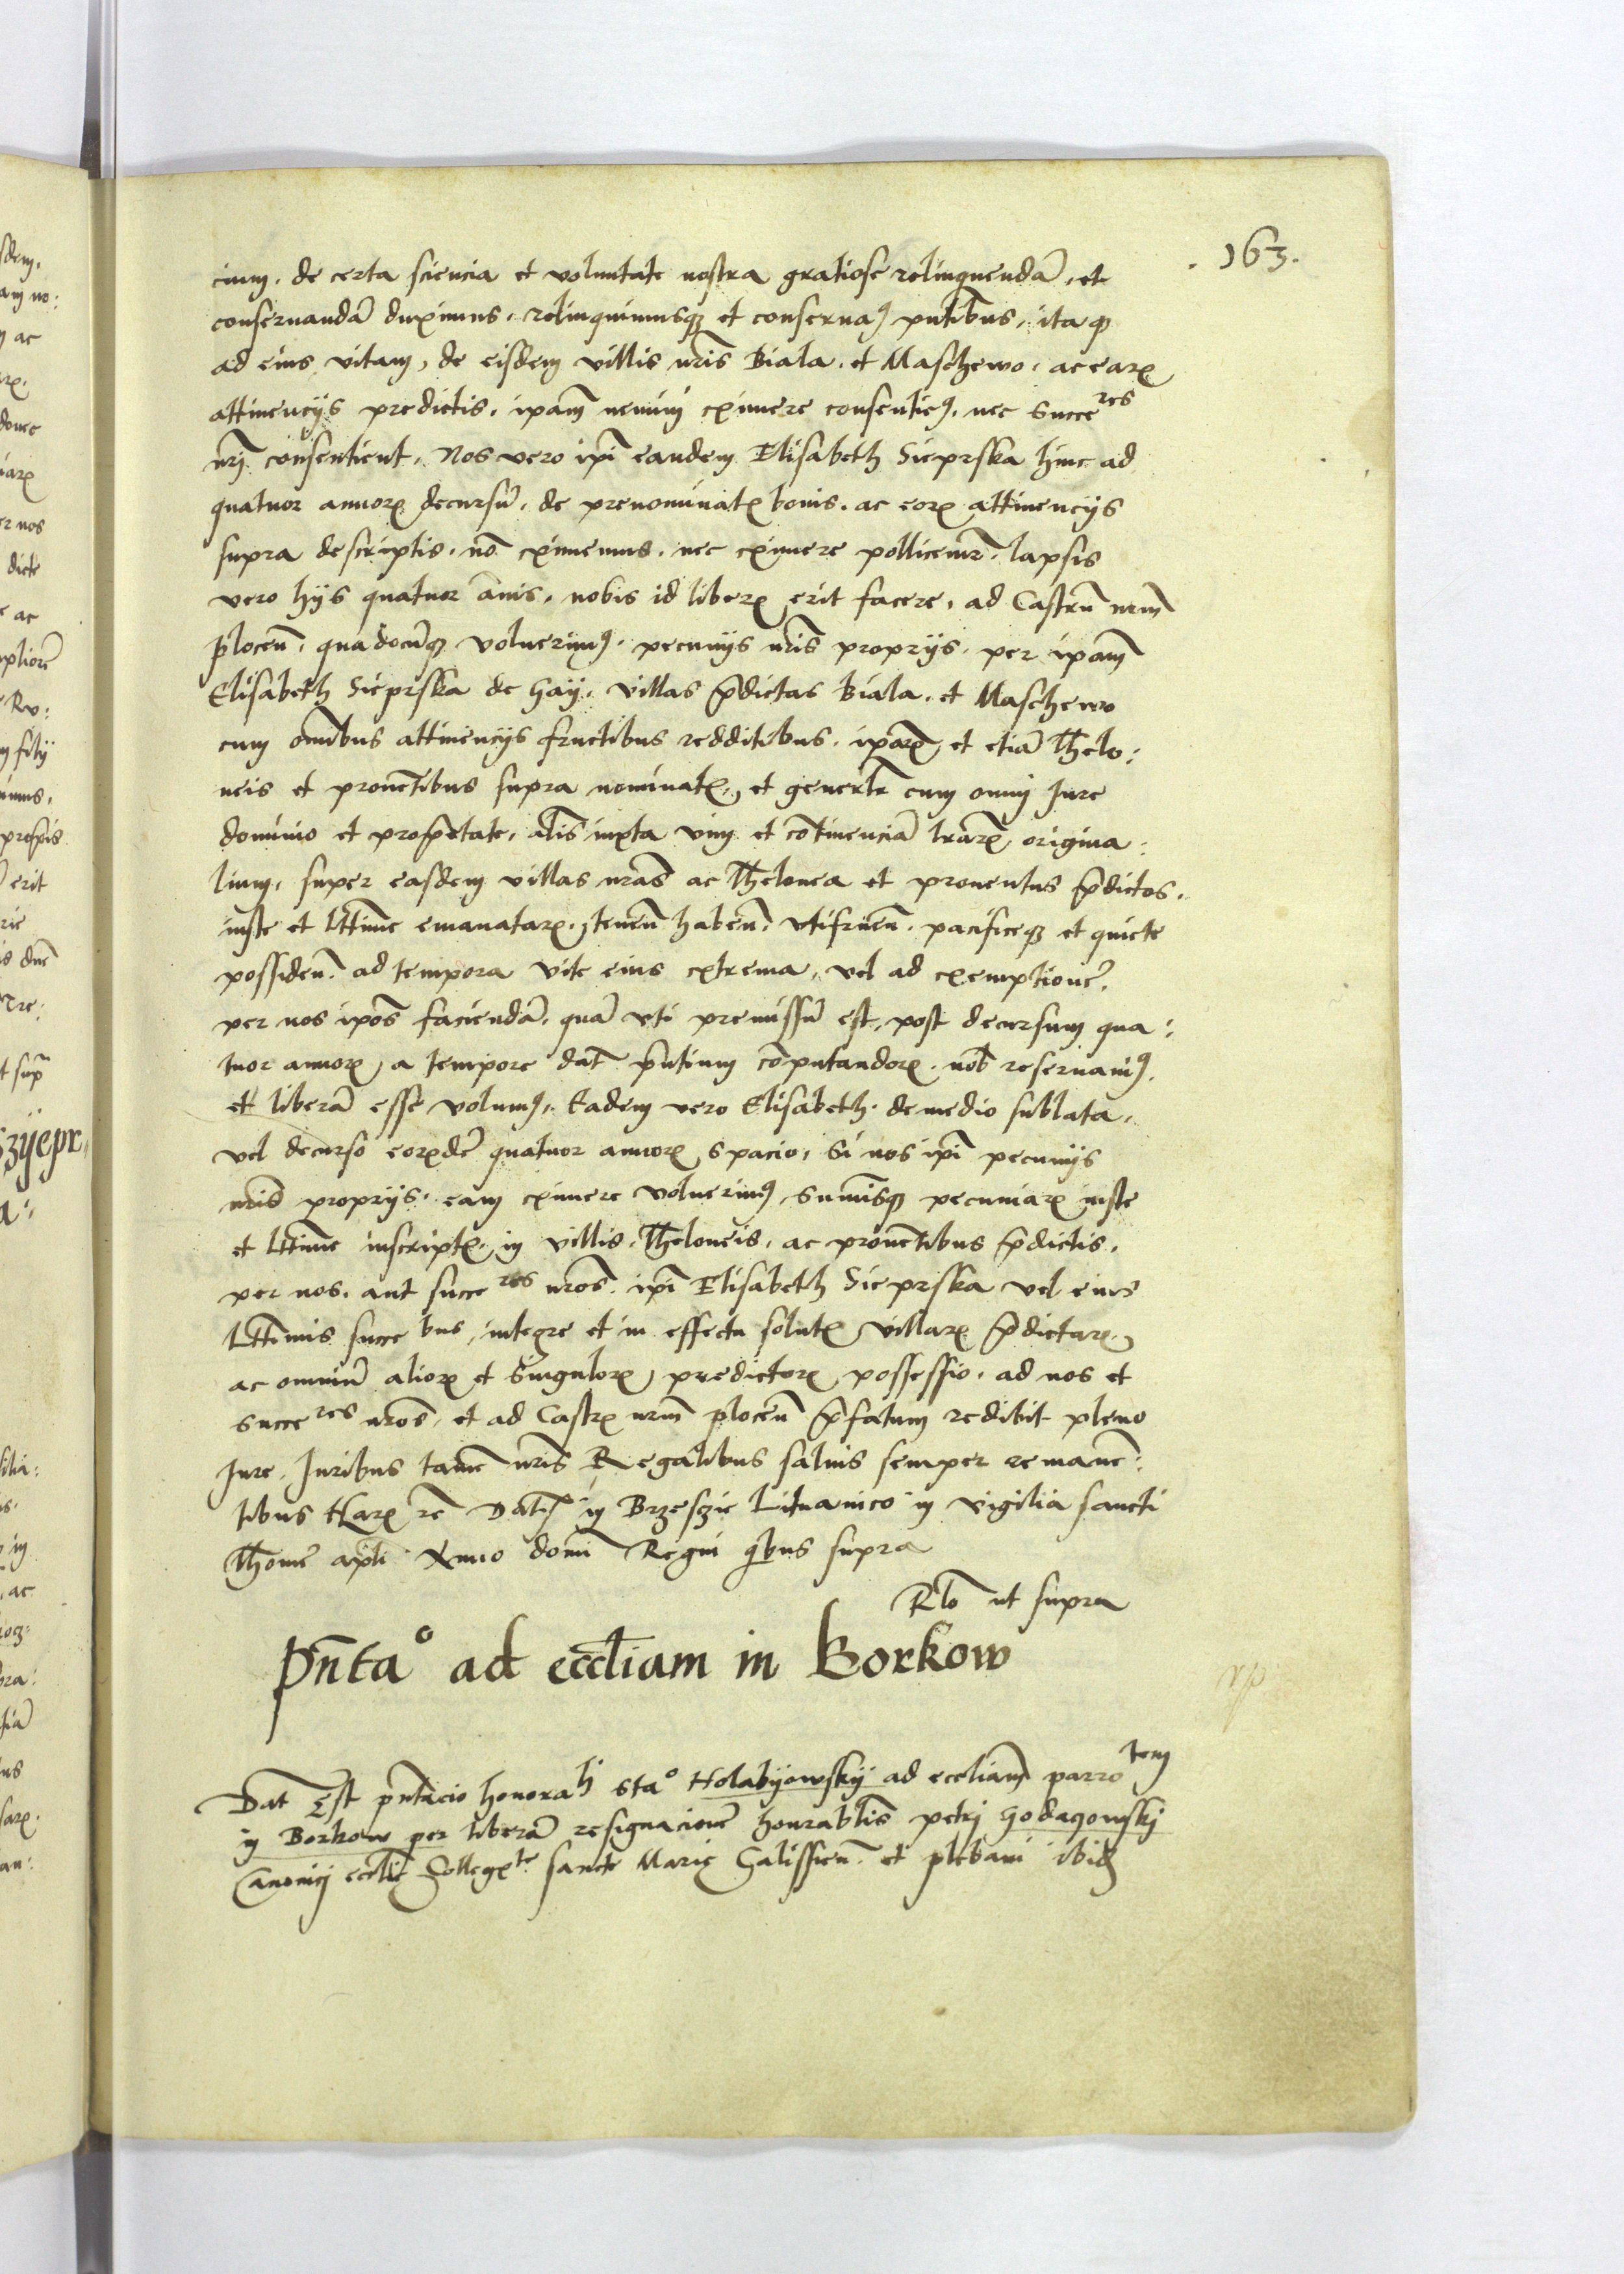 . 163.
cium. de certa sciencia et voluntate nostra gratiose relinquendā, et
conseruandā duximus. relinquimusqꝫ et conseruaꝰ pntībus, ita qꝫ
ad eius vitam, de eisdem villis nrīs Biala. et Maschewo. ac earꝝ
attinencijs predictis. ipam̄ nemini eximere consentieꝰ. nec succeres
nrj̄ consentient. Nos vero ipī eandem Elisabeth Sieprska hinc ad
quatuor annorꝝ decursū. de prenominatꝝ bonis. ac eorꝝ attinencijs
supra descriptis. nō eximemus. nec eximere pollicemr̄. lapsis
vero hijs quatuor ānis. nobis id liberꝝ erit facere, ad Castrū nrm̄
plocen̄. quādocūqꝫ voluerimꝰ. pecunijs nrīs proprijs. per ipam̄
Elisabeth Sieprska de Gaij. villas p̄dictas Biala. et Maschewo
cum om̄ibus attinencijs fructibus redditibus. ipar̄ꝝ et etiā Thelo:
neis et prouētibus supra nominatꝝ. et generl̄r cum omnj Jure
dominio et prop̄etate, al̄s iuxta vim et cōtinenciā lrār̄ꝝ origina:
lium, super easdem villas nrās ac Thelonea et prouentus p̄dictos.
iuste et lttīme emanatarꝝ. tenen̄ haben̄. vtifruen̄. pacificeqꝫ et quiete
possiden̄. ad tempora vite eius extrema, vel ad exemptionē.
per nos ipōs faciendā. quā vti premissū est, post decursum qua:
tuor annorꝝ a tempore dat̄ pn̄tium cōputandorꝝ. nob̄ reseruamꝰ.
et liberā esse volumꝰ. Eadem vero Elisabeth. de medio sublata.
vel decurso eorꝝdē quatuor annorꝝ spacio, si nos ipī pecunijs
nrīs proprijs. eam eximere voluerimꝰ, sum̄isqꝫ pecuniarꝝ iuste
et lttīme inscriptꝝ. in villis. Theloneis. ac prouētibus p̄dictis.
per nos. aut succeres nrōs. ipī Elisabeth Sieprska vel eius
lttīmis succebus, integre et in effectu solutꝝ villarꝝ p̄dictarꝝ
ac omniū aliorꝝ et singulorꝝ predictorꝝ possessio. ad nos et
succeres nrōs. et ad Castrꝝ nrm̄ plocen̄ p̄fatum redibit pleno
Jure. Juribus tamē nrīs Regalibus saluis semper remanē:
tibus Harꝝ rē Datꝭ in Brzesczie Lituanico in vigilia sancti
Thome apl̄i Anno domī Regni qibus supra
Rlō ut supra
Pn̄tao ad eccl̄iam in Borkow
Dat̄ Est pn̄tacio honorali stao Holabijowskij ad eccliam̄ parrotem
in Borkow per liberā resignacionē honrablīs petrj Godaçowskj
Canonicj eccl̄ie Collegꝝte sancte Marie Galissien̄. et plebani ibidꝫ